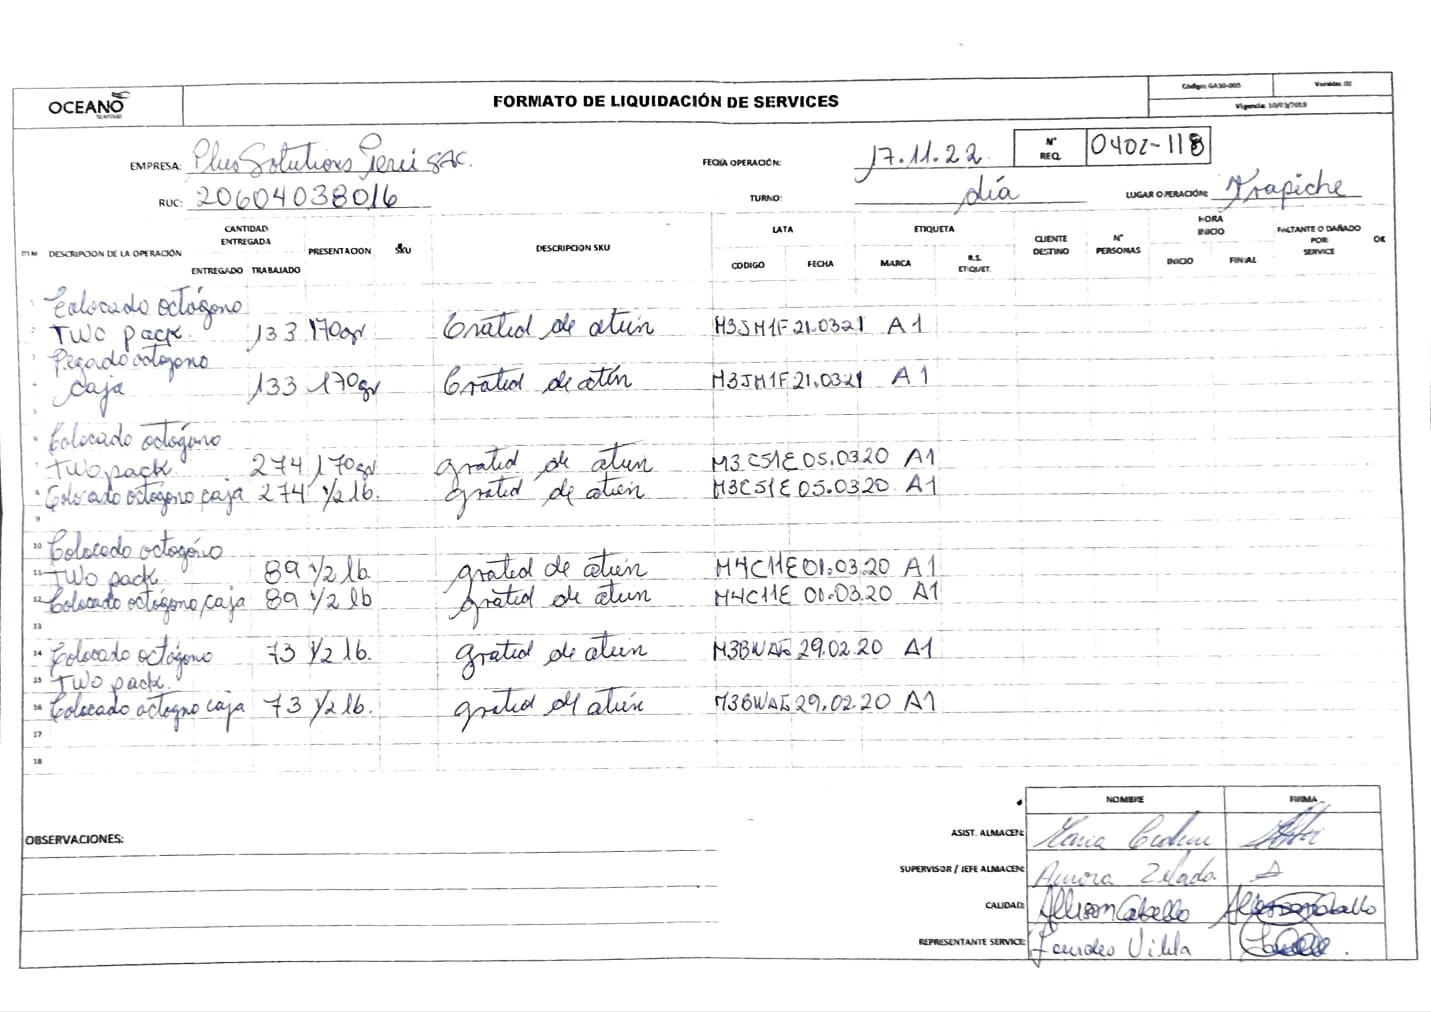 OCEANO
SEAFOOD
FORMATO DE LIQUIDACIÓN DE SERVICES
Código: GA30-005 Versión: 02
Vigencia: 10/03/2019
EMPRESA: Plus Solutions Perú SAC.
FECHA OPERACIÓN: 17.11.22
N° REQ. 0402-118
RUC: 20604038016
TURNO: día
LUGAR OPERACIÓN: Trapiche
ITEM DESCRIPCION DE LA OPERACIÓN CANTIDAD ENTREGADA PRESENTACION SKU DESCRIPCION SKU LATA ETIQUETA CLIENTE DESTINO N° PERSONAS HORA INICIO FALTANTE O DAÑADO POR SERVICE OK
ENTREGADO TRABAJADO CODIGO FECHA MARCA R.S. ETIQUET. INICIO FINAL
1 Colocado octógono
2 TWO pack. 133 170gr Grated de atún M3JM1F 21.0321 A1
3 Pegado octogono
4 caja 133 170gr Grated de atún M3JM1F 21.0321 A1
5
6 Colocado octógono
7 TWO pack. 274 170gr grated de atún M3C51E 05.0320 A1
8 Colocado octogono caja 274 1/2 lb. grated de atún M3C51E 05.0320 A1
9
10 Colocado octogóno
11 TWO pack 89 1/2 lb. grated de atún M4C11E 01.03.20 A1
12 Colocado octógono caja 89 1/2 lb grated de atun M4C11E 01.03.20 A1
13
14 Colocado octógono 73 1/2 lb. grated de atún M3BWAE 29.02.20 A1
15 TWO pack.
16 Colocado octogno caja 73 1/2 lb. grated de atún M3BWAE 29.02.20 A1
17
18
NOMBRE FIRMA
OBSERVACIONES:
ASIST. ALMACEN: Maria
SUPERVISOR / JEFE ALMACEN: Aurora Zelada.
CALIDAD: Allison Cabello
REPRESENTANTE SERVICE: Lourdes Villa